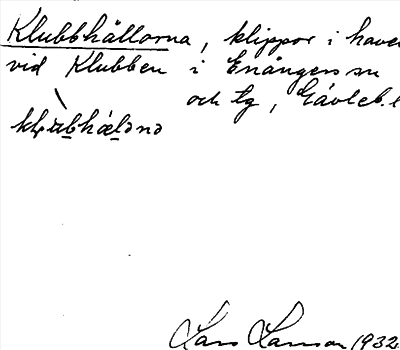 Klubbhällorna, klippor i have
vid Klubben i Enångers sn
och tg, Gävleb. l
Lars Larsson 1932